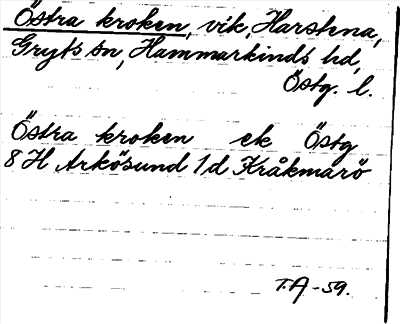 Östra kroken, vik, Harstena,
Gryts sn, Hammarkinds hd,
Östg. l.
Östra kroken ek Östg
8 H Arkösund 1 d Kråkmarö
T.A-59.